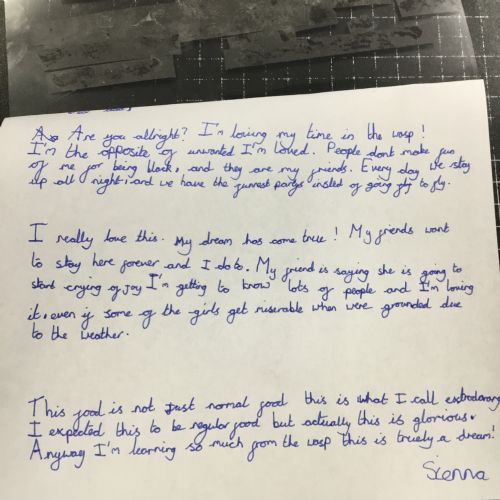 Are you allright? I'm loving my time in the wasp!
I'm the opposite of unwanted I'm loved. People dont make fun
of me for being black, and they are my friends. Every day we stay
up all night, and we have the funnest partys insted of going to fly.
I really love this. My dream has come true! My friends want
to stay here forever and I do to. My friend is saying she is going to
start crying of joy I'm getting to know lots of people and I'm loving
it, even if some of the girls get miserable when were grounded due
to the weather.
This food is not Just normal food this is what I call
I expected this to be regular food but actually this is glorious.
Anyway I'm learning so much from the wasp this is truely a dream!
Sienna